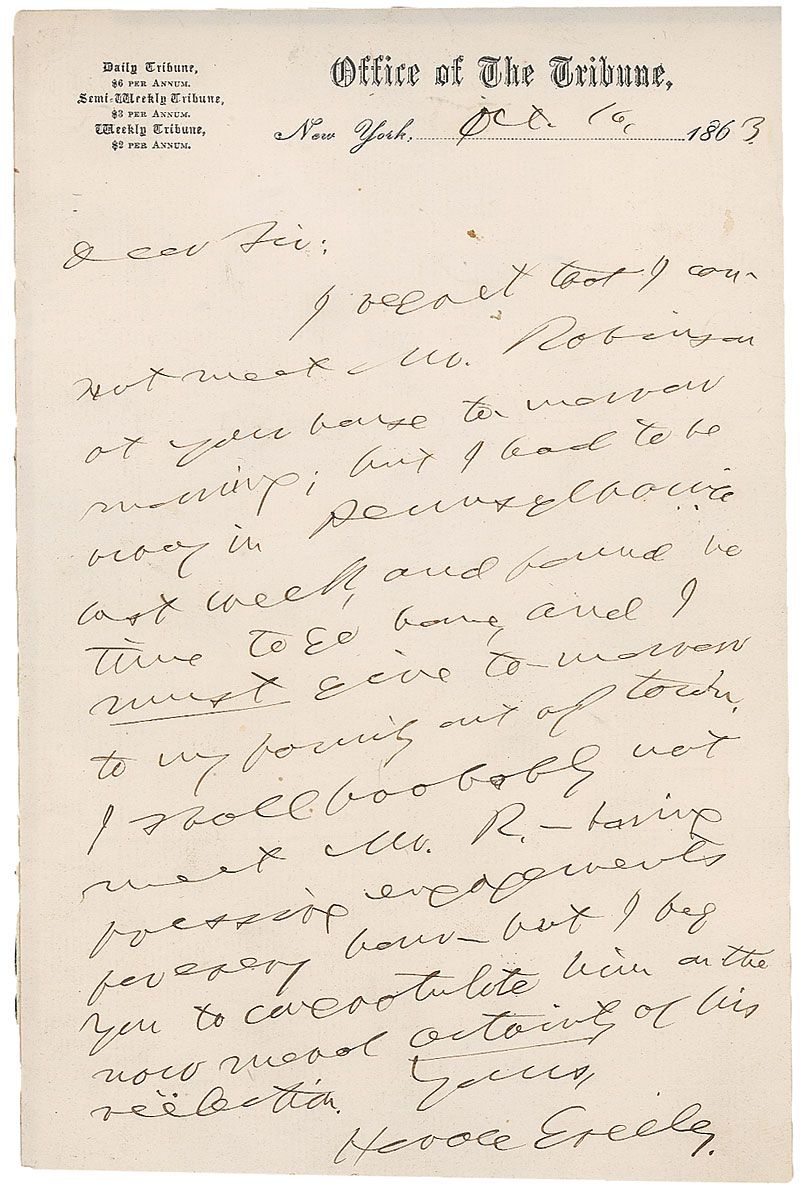 Daily Tribune,
$6 per Annum.
Semi-Weekly Tribune,
$3 per Annum.
Weekly Tribune,
$2 per Annum.
Office of The Tribune,
New York, Oct. 16, 1863.
Dear Sir:
I regret that I can-
not meet Mr. Robinson
at your house to-morrow
morning; but I had to be
away in Pennsylvania
last week, and found no
time to go home, and I
must give to-morrow
to my family out of town.
I shall probably not
meet Mr. R. — having
pressing engagements
for every hour — but I beg
you to congratulate him on the
now moral certainty of his
reëlection. Yours,
Horace Greeley.